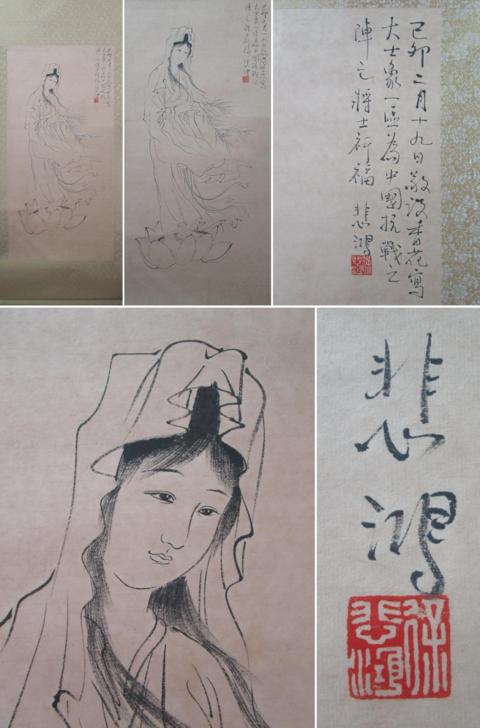 己卯二月十九日敬設香花寫
大士象一區為中國抗戰之
陣亡將士祈福 悲鴻
悲鴻
徐悲鴻